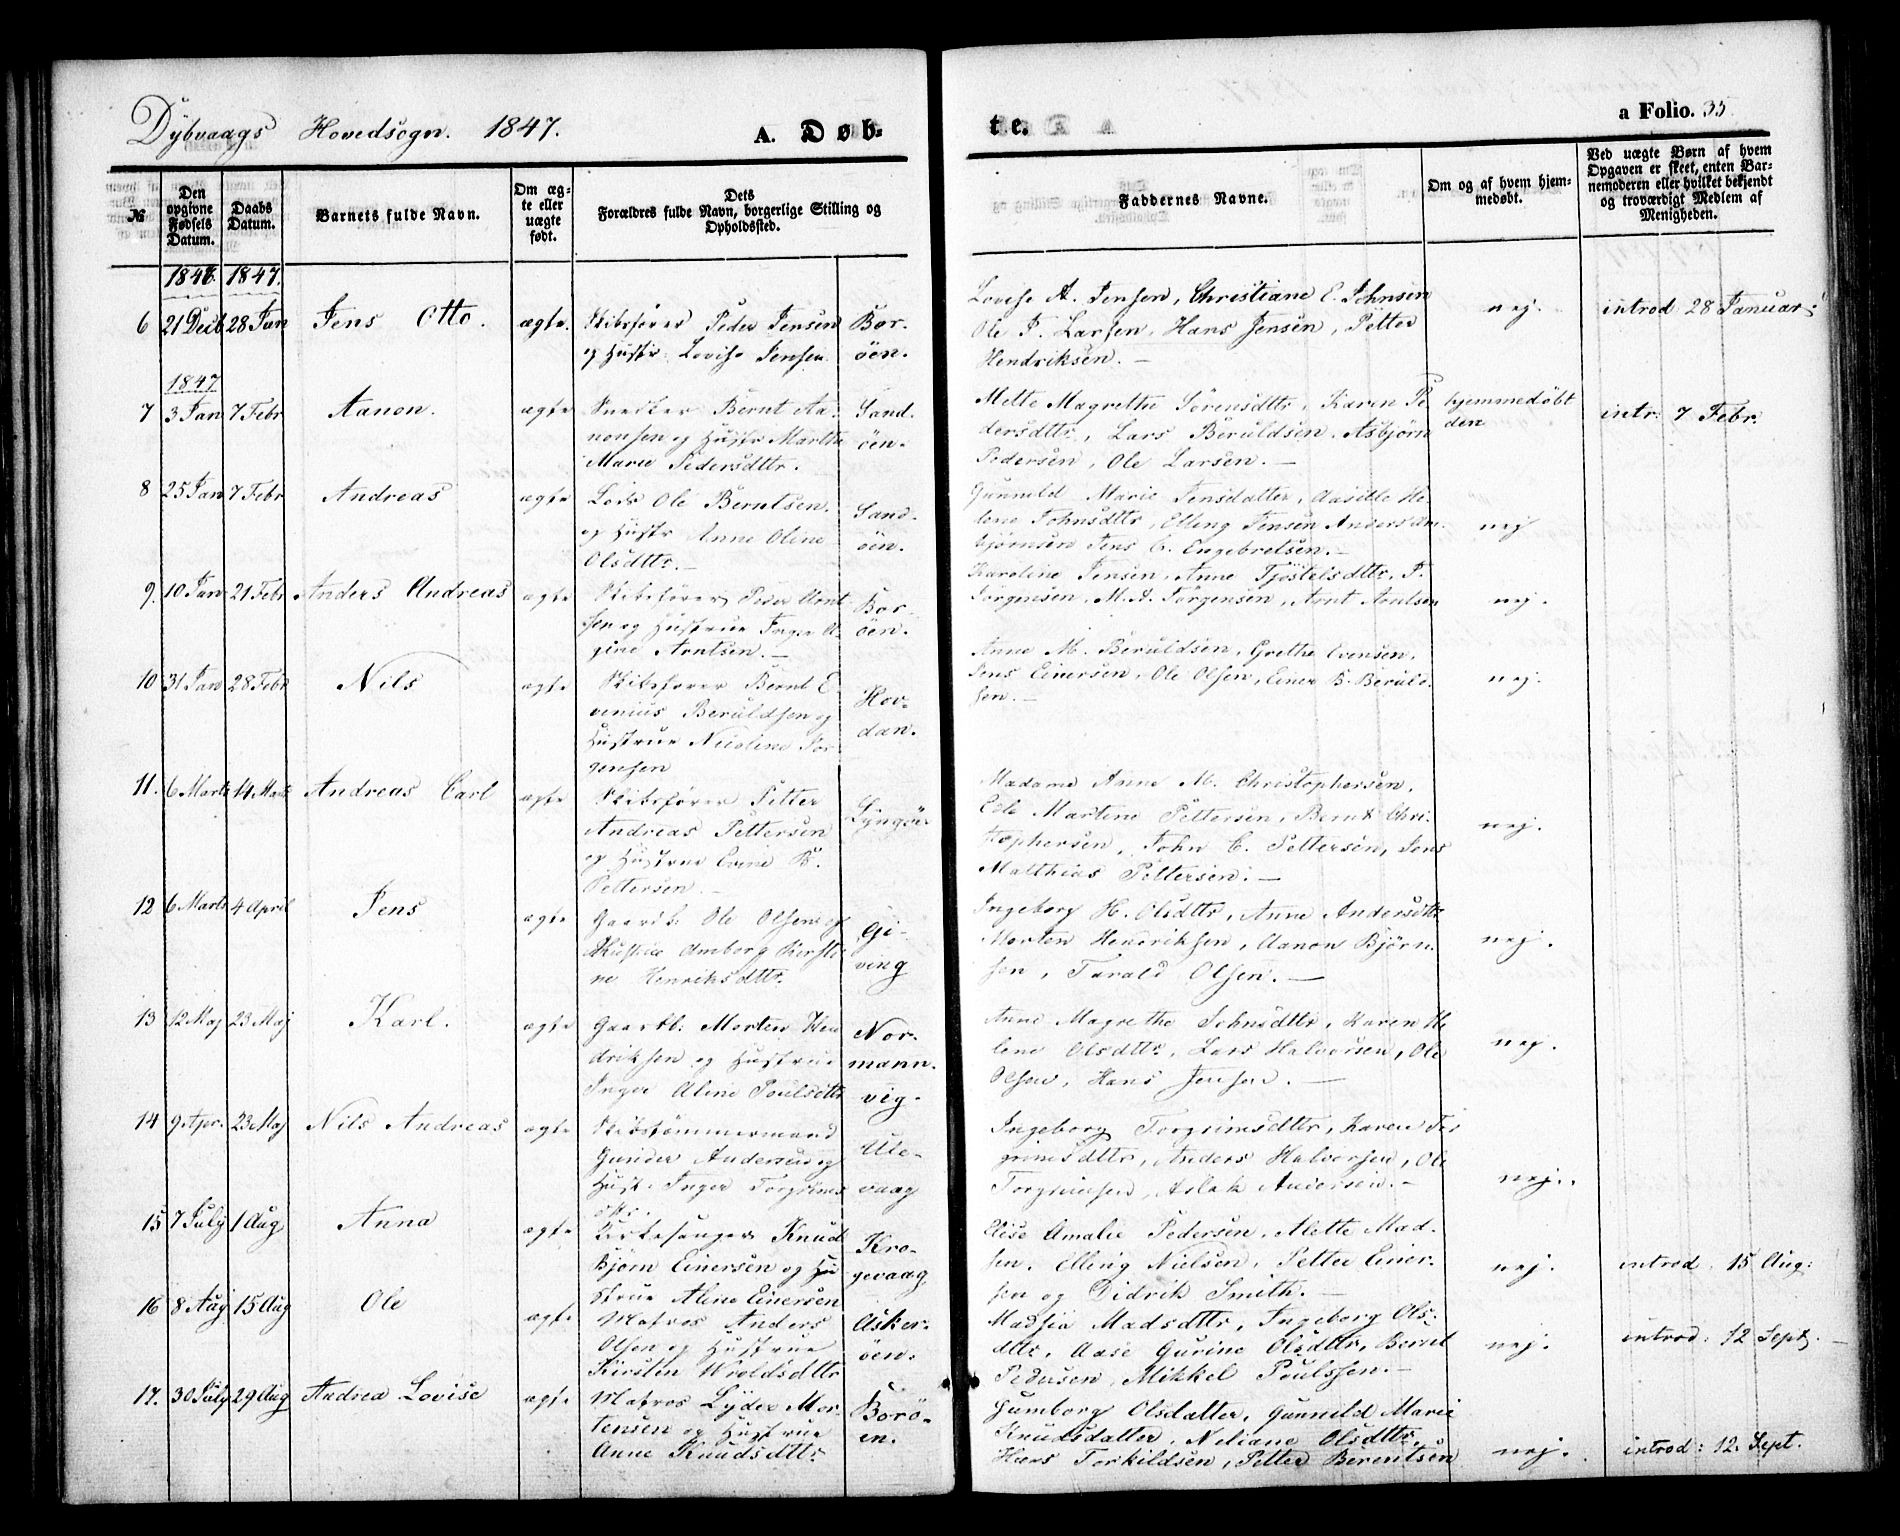 Dybvaags Hovedsogn. 1847. A. Døb-
te. a Folio. 35
№
Den opgivne Fødsels Datum.
Daabs Datum.
Barnets fulde Navn.
Om ægte eller uægte født.
Dets Forældres fulde Navn, borgerlige Stilling og Opholdssted.
Faddernes Navne.
Om og af hvem hjemmedøbt.
Ved uægte Børn af hvem Opgaven er skeet, enten Barnemoderen eller hvilket bekjendt og troværdigt Medlem af Menigheden.
1846 1847.
6 21 Decb 28 Jan Jens Otto. ægte. Skibsfører Peder Jensen Bor-
og Hustr. Lovise Jensen öen.
Lovise A. Jensen, Christiane E. Johnsen
Ole P. Larsen, Hans Jensen, Petter
Hendriksen. —
nej. introd 28 Januar
1847
7 3 Jan 7 Febr Aanon. ægte Snedker Bernt Aa- Sand-
nonsen og Hustr Marthe öen.
Marie Pedersdttr.
Mette Magrethe Sörensdttr, Karen Pe-
dersdttr, Lars Beruldsen, Asbjörn
Pedersen, Ole Larsen. —
hjemmedøbt
den
intr: 7 Febr.
8 25 Jan 7 Febr Andreas ægte Lods Ole Berntsen. Sand-
og Hustr Anne Oline öen.
Olsdttr. —
Gunnild Marie Jensdatter, Aasille He-
lene Johnsdttr, Elling Jensen Anders An-
bjørnsen Jens C. Engebretsen. —
nej
9. 10 Jan 21 Febr Anders Andreas ægte Skibsfører Peder Arnt Bor-
sen og Hustrue Inger öen.
gine Arntsen. —
Karoline Jensen, Anne Tjöstelsdttr, P.
Jörgensen, M. A. Jörgensen, Arnt Arntsen
nej.
10 31 Jan 28 Febr Nils ægte Skibsfører Bernt E- Hov-
venius Beruldsen og dan.
Hustrue Nicoline Jör-
gensen
Anne M. Beruldsen, Grethe Evensen,
Jens Einersen, Ole Olsen, Einer B. Beruld-
sen. —
nej.
11. 6 Marts 14 Marts Andreas Carl ægte Skibsfører Petter Lyngör
Andreas Pettersen
og Hustrue B.
Pettersen. —
Madame Anne M. Christophersen,
Edle Martine Pettersen, Bernt Chri-
stophersen, John C. Pettersen, Jens
Matthias Pettersen. —
nej.
12 6 Marts 4 April Jens ægte Gaardb: Ole Olsen og Gi-
Hustrue Amborg Kirsti- ving
ne Henriksdttr.
Ingeborg H. Olsdttr, Anne Andersdttr
Morten Hendriksen, Aanon Björn-
sen, Tarald Olsen. —
nej.
13 12 Maj 23 Maj Karl. ægte Gaardb: Morten Hen Nor-
driksen og Hustrue mann-
Inger Aline Poulsdttr vig.
Anne Magrethe Johnsdttr, Karen He
lene Olsdttr, Lars Halvorsen, Ole
Olsen, Hans Jensen. —
nej.
14 9 Apr. 23 Maj Nils Andreas ægte Skibstømmermand Ule-
Gunder Andersen og vaag
Hust. Inger Torgrims
dttr.
Ingeborg Torgrimsdttr, Karen Tor
grimsdttr, Anders Halvorsen, Ole
Torgrimsen, Aslak Andersen. —
nej.
15 7 July 1 Aug Anna ægte Kirkesanger Knud Kro-
Björn Einersen og Hu gevaag
strue Aline Einersen
Elise Amalie Pedersen, Mette Mad-
sen, Elling Nielsen, Petter Einer-
sen og Didrik Smith. —
nej. introd. 15 Aug:
16 8 Aug 15 Aug Ole ægte Matros Anders Asker-
Olsen og Hustrue öen.
Kirsten Wroldsdttr
Madsia Madsdttr, Ingeborg Ols-
dttr, Aase Gurine Olsdttr, Bernt
Pedersen, Mikkel Poulssen. —
nej. introd. 12 Sept. —
17. 30 July 29 Aug Andrea Lovise ægte Matros Lyder Mor- Borö-
tensen og Hustrue en.
Anne Knudsdttr
Gumborg Olsdatter, Gunnild Marie
Knudsdatter, Neliane Olsdttr,
Hans Torkildsen, Petter Berentsen
nej. introd: 12. Sept.